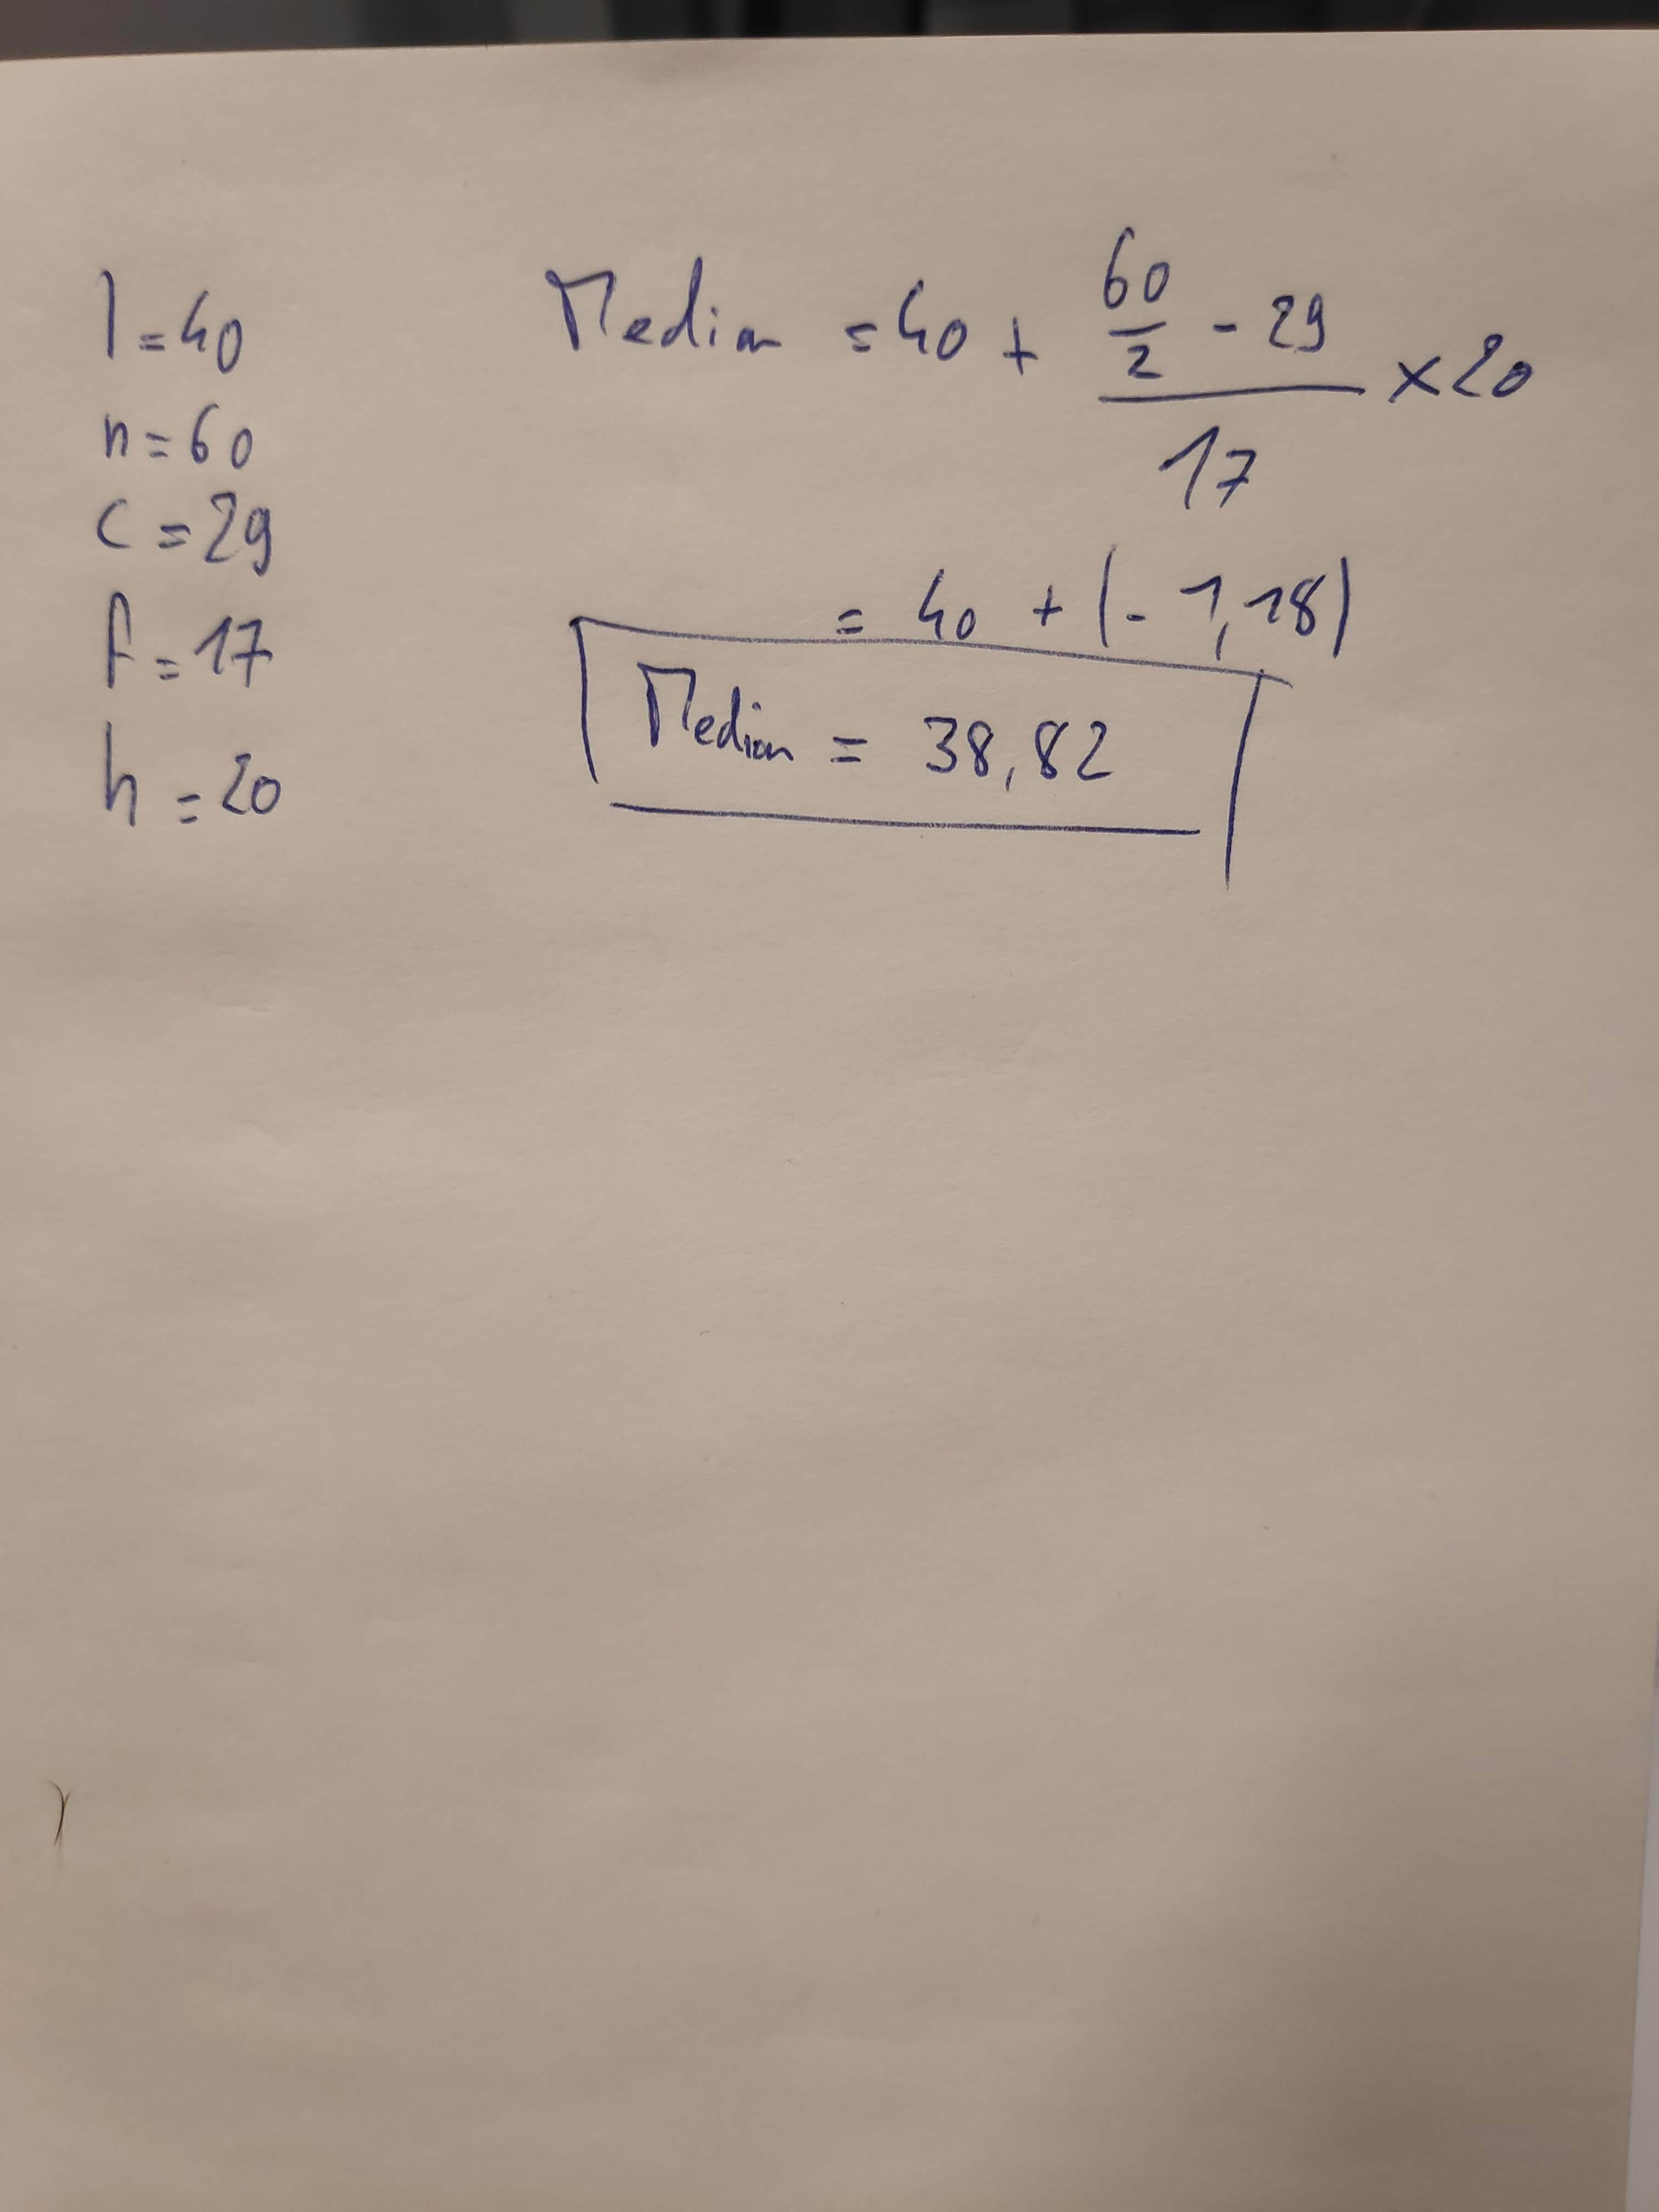 l = 40
n = 60
c = 29
f = 17
h = 20
Median = 40 + 60/2 - 29 / 17 × 20
= 40 + (- 1,18)
Median = 38,82